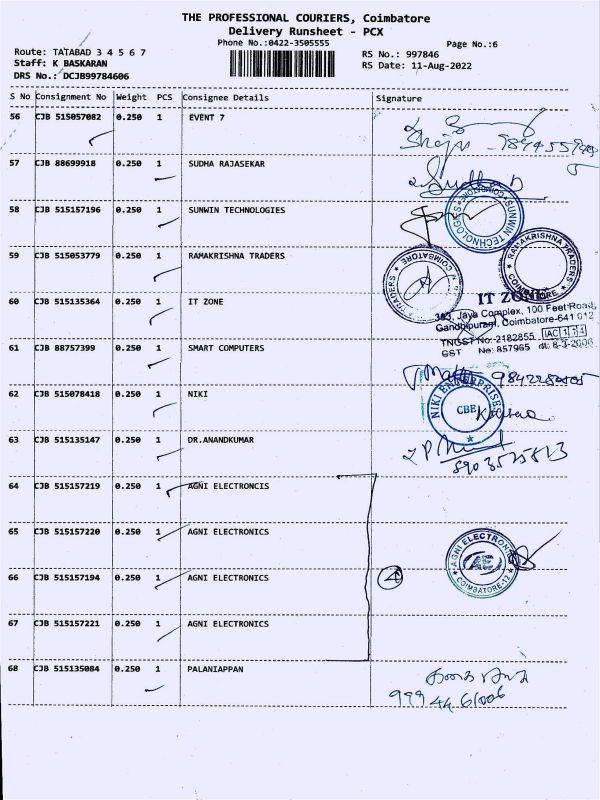 THE PROFESSIONAL COURIERS, Coimbatore
Delivery Runsheet - PCX
Phone No.:0422-3505555
Page No.:6
Route: TATABAD 3 4 5 6 7
RS No.: 997846
Staff: K BASKARAN
RS Date: 11-Aug-2022
DRS No.: DCJB99784606
S No Consignment No Weight PCS Consignee Details Signature
56 CJB 515057082 0.250 1 EVENT 7
57 CJB 88699918 0.250 1 SUDHA RAJASEKAR
58 CJB 515157196 0.250 1 SUNWIN TECHNOLOGIES
SUNWIN TECHNOLOGIES COIMBATORE
59 CJB 515053779 0.250 1 RAMAKRISHNA TRADERS
RAMAKRISHNA TRADERS COIMBATORE
TRADERS COIMBATORE
60 CJB 515135364 0.250 1 IT ZONE
IT ZONE
383, Jaya Complex, 100 Feet Road,
Gandhipuram, Coimbatore-641 012
TNGST No: 2182855
GST No: 857965 dt: 8-3-2006
61 CJB 88757399 0.250 1 SMART COMPUTERS
62 CJB 515078418 0.250 1 NIKI
NIKI ENTERPRISES
CBE
63 CJB 515135147 0.250 1 DR.ANANDKUMAR
8903525823
64 CJB 515157219 0.250 1 AGNI ELECTRONCIS
65 CJB 515157220 0.250 1 AGNI ELECTRONICS
AGNI ELECTRONICS COIMBATORE-12
66 CJB 515157194 0.250 1 AGNI ELECTRONICS
4
67 CJB 515157221 0.250 1 AGNI ELECTRONICS
68 CJB 515135084 0.250 1 PALANIAPPAN
999 44 61006